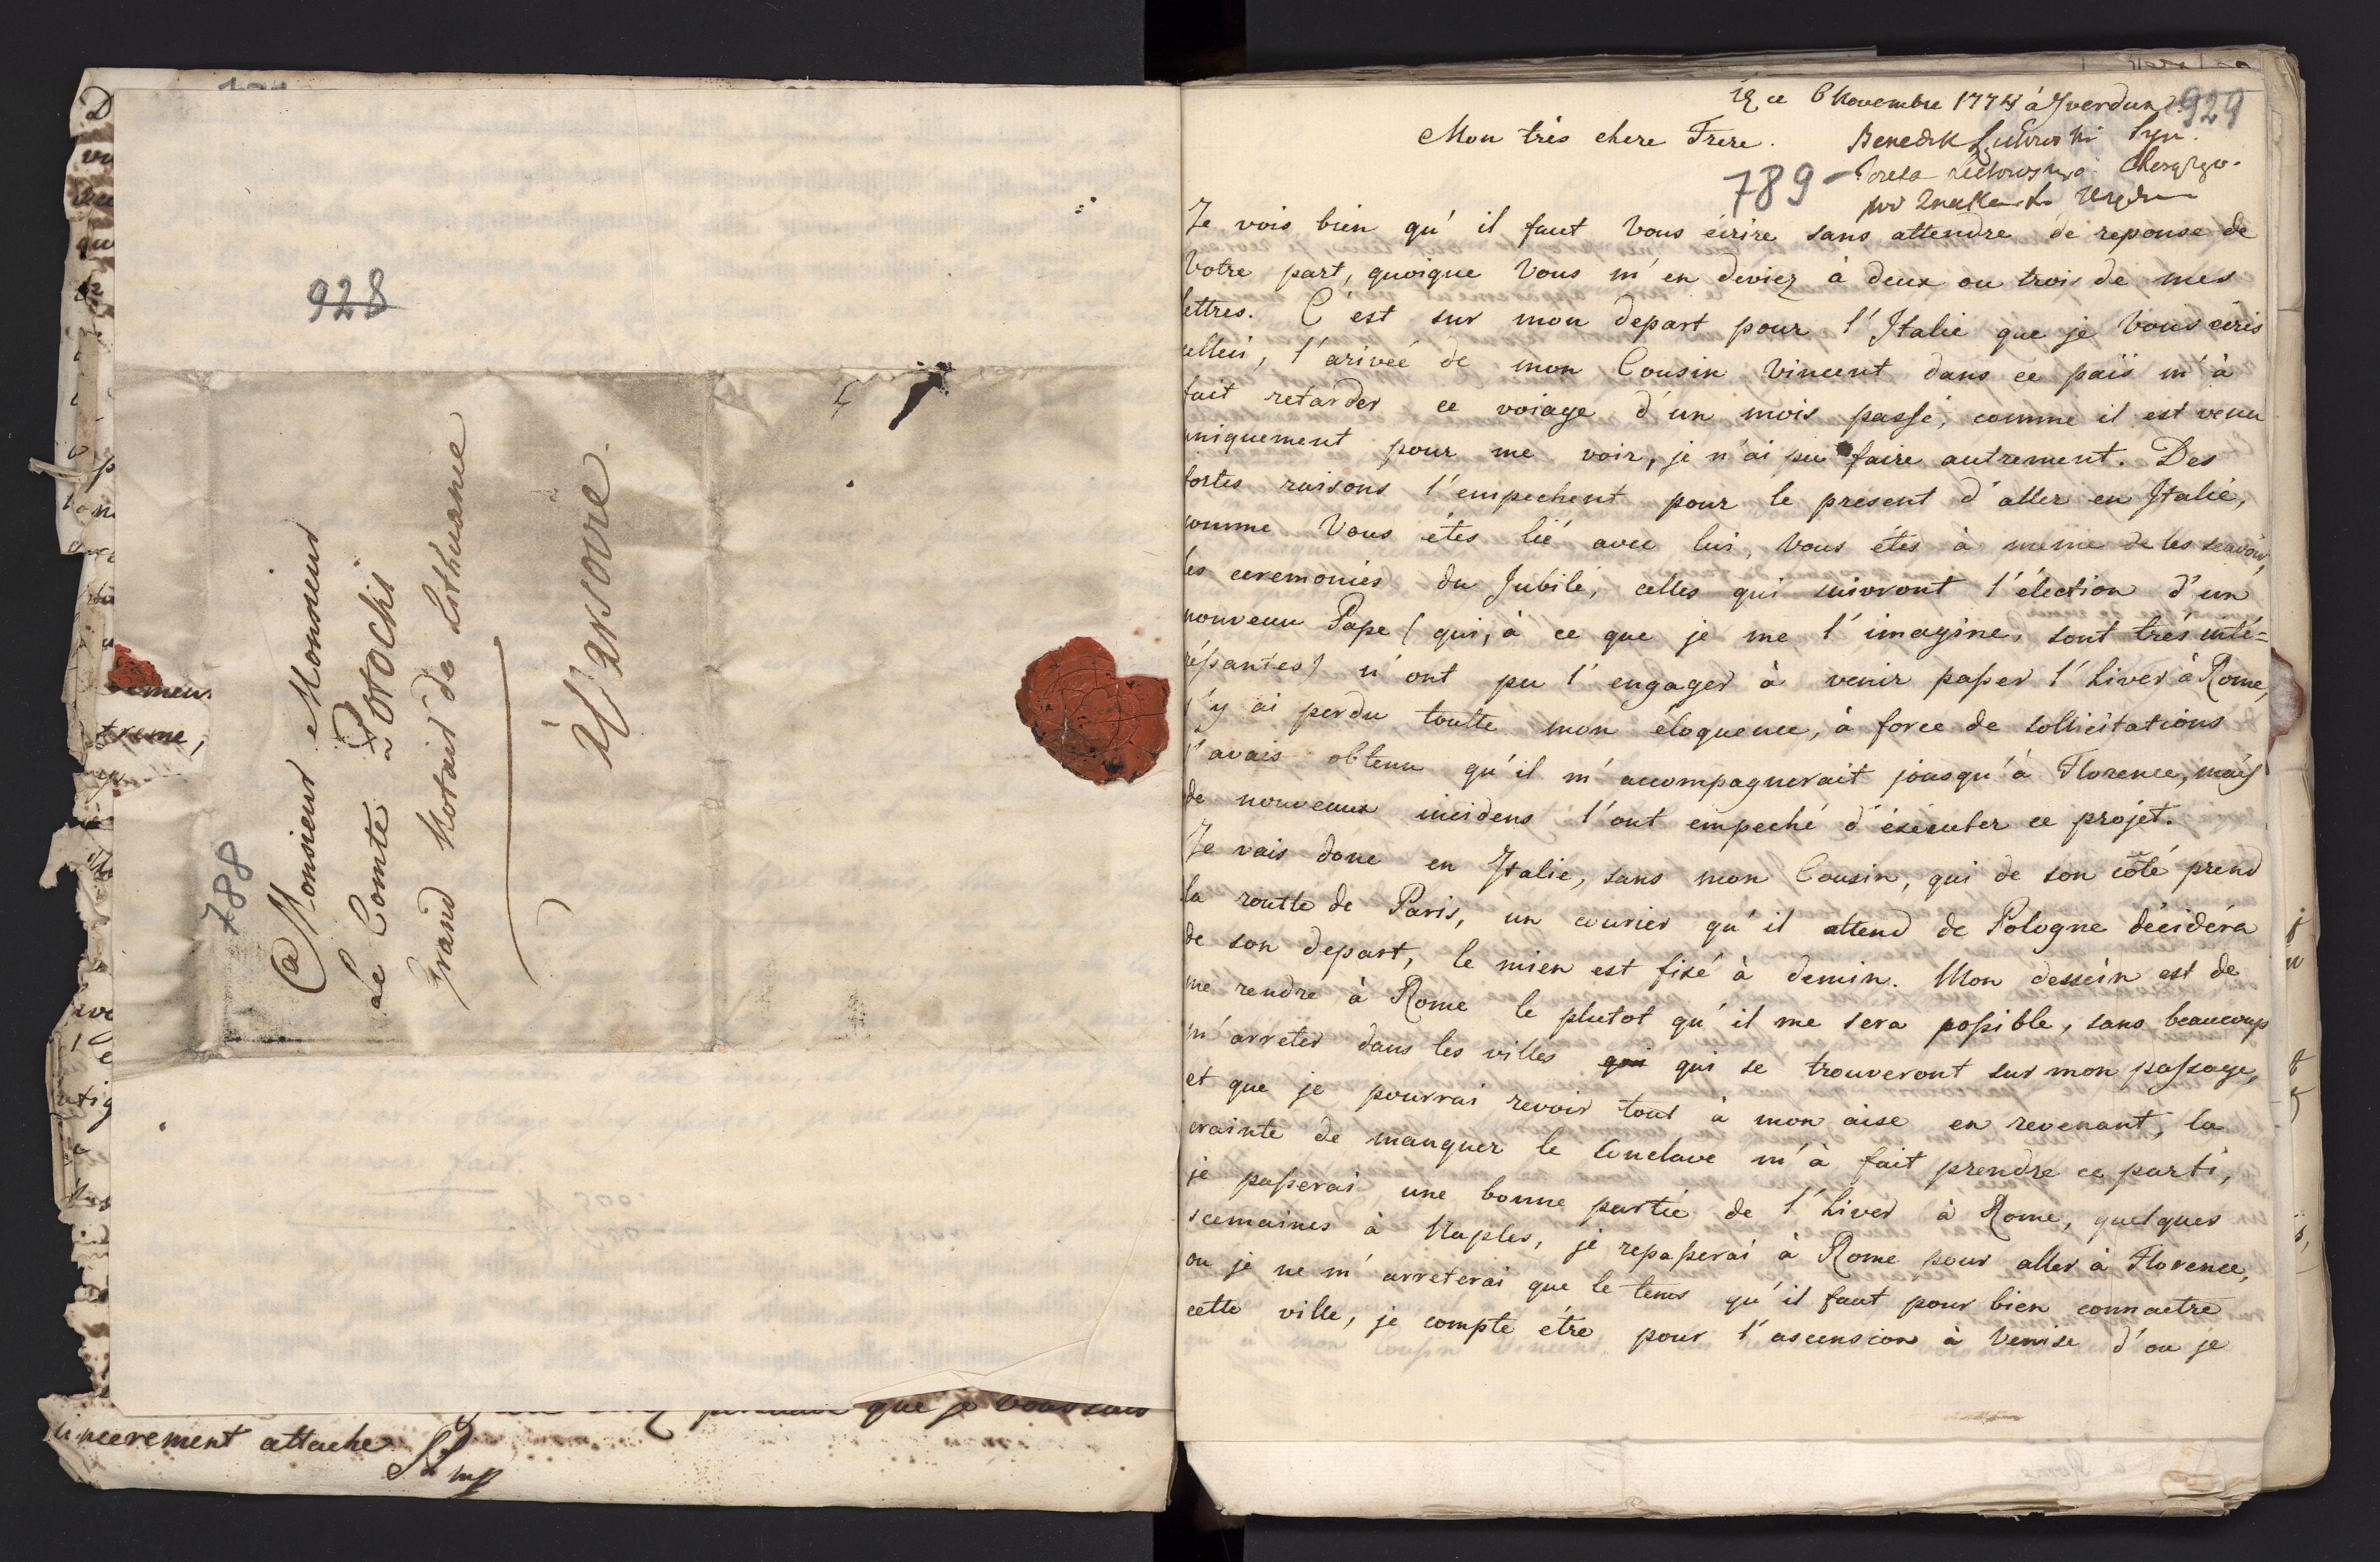 928
788
A Monsieur Monsieur
Le Comte Potocki
Grand Notaire de Lithuanie
à Varsovie.
que je vous suis
sincerement attaché
ce 6 Novembre 1774 à Yverdun
929
Mon très chere Frere.
789
Je vois bien qu'il faut Vous ecrire sans attendre de reponse de
Votre part, quoique Vous m'en deviez à deux ou trois de mes
lettres. C'est sur mon depart pour l'Italie que je Vous ecris
celleci, l'arivée de mon Cousin Vincent dans ce païs m'à
fait retarder ce voiage d'un mois passé, comme il est venu
uniquement pour me voir, je n'ai pu faire autrement. Des
fortes raisons l'empechent pour le present d'aller en Italie,
comme Vous étes lié avec lui, Vous étes à meme de les scavoir,
les ceremonies du Jubilé, celles qui suivront l'élection d'un
nouveau Pape (qui, à ce que je me l'imagine, sont très inté=
ressantes) n'ont pu l'engager à venir passer l'hiver à Rome,
j'y ai perdu toutte mon éloquence, à force de sollicitations
j'avais obtenu qu'il m'accompagnerait jousqu'à Florence, mais
de nouveaux incidens l'ont empeché d'éxécuter ce projet.
Je vais donc en Italie, sans mon Cousin, qui de son côté prend
la routte de Paris, un courier qu'il attend de Pologne décidéra
de son depart, le mien est fixé à demin. Mon dessein est de
me rendre à Rome le plutot qu'il me sera possible, sans beaucoup
m'arreter dans les villes qui qui se trouveront sur mon passage,
et que je pourrai revoir tout à mon aise en revenant, la
crainte de manquer le Conclave m'à fait prendre ce parti,
je passerai une bonne partie de l'hiver à Rome, quelques
scemaines à Naples, je repasserai à Rome pour aller à Florence,
ou je ne m'arreterai que le tems qu'il faut pour bien connaetre
cette ville, je compte étre pour l'ascension à Venise d'ou je